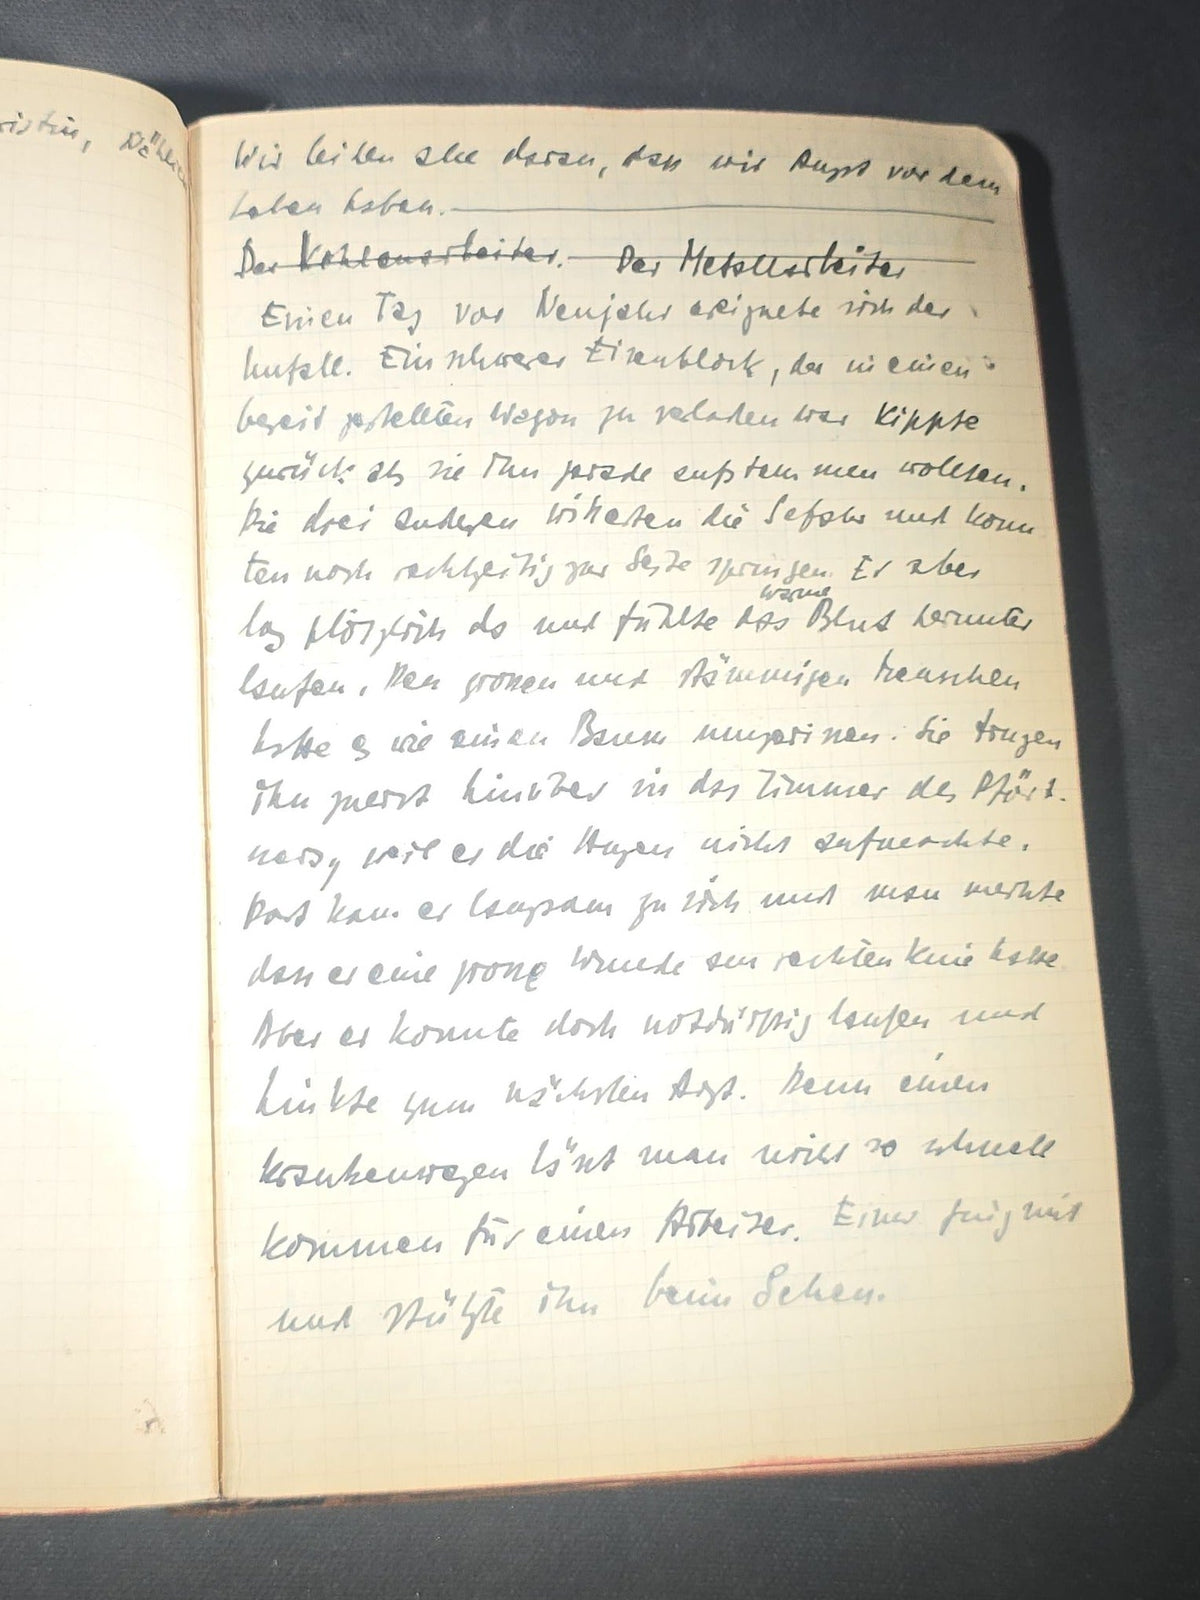 Wir leiden alle daran, dass wir Angst vor dem
Leben haben.
Der Kohlenarbeiter. Der Metallarbeiter
Einen Tag vor Neujahr ereignete sich der
Unfall. Ein schwerer Eisenblock, der in einen
bereit gestellten Wagon zu verladen war kippte
zurück als sie ihn gerade aufstemmen wollten.
Die drei anderen witterten die Gefahr und konn
ten noch rechtzeitig zur Seite springen. Er aber
warme
lag plötzlich da und fühlte das Blut herunter
laufen. Den grossen und stämmigen Menschen
hatte es wie einen Baum umgerissen. Sie trugen
ihn zuerst hinüber in das Zimmer des Pfört-
ners, weil er die Augen nicht aufmachte.
Dort kam er langsam zu sich und man merkte
dass er eine grosse Wunde am rechten Knie hatte
Aber er konnte doch notdürftig laufen und
hinkte zum nächsten Arzt. Denn einen
Krankenwagen lässt man nicht so schnell
kommen für einen Arbeiter. Einer ging mit
und stützte ihn beim Gehen.